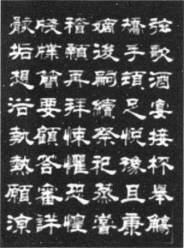 弦歌酒宴接杯舉觴
矯手頓足悅豫且康
嫡後嗣續祭祀蒸嘗
稽顙再拜悚懼恐惶
牋牒簡要顧答審詳
骸垢想浴執熱願涼